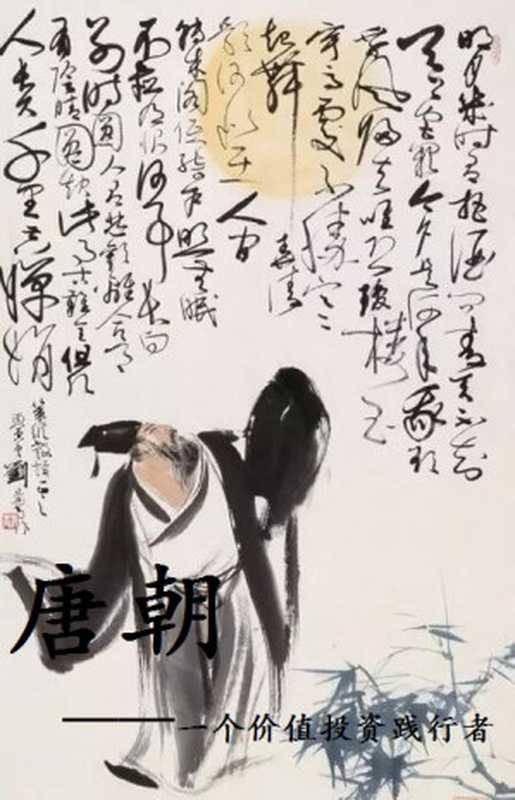 明月幾时有把酒问青天不知
天上宫阙今夕是何年我欲
乘风归去唯恐琼楼玉
宇高处不胜寒
起舞弄清
影何似在人间
转朱阁低绮户照无眠
不应有恨何事长向
别时圆人有悲欢离合月
有阴晴圆缺此事古难全但愿
人长久千里共婵娟
唐朝
——一个价值投资践行者